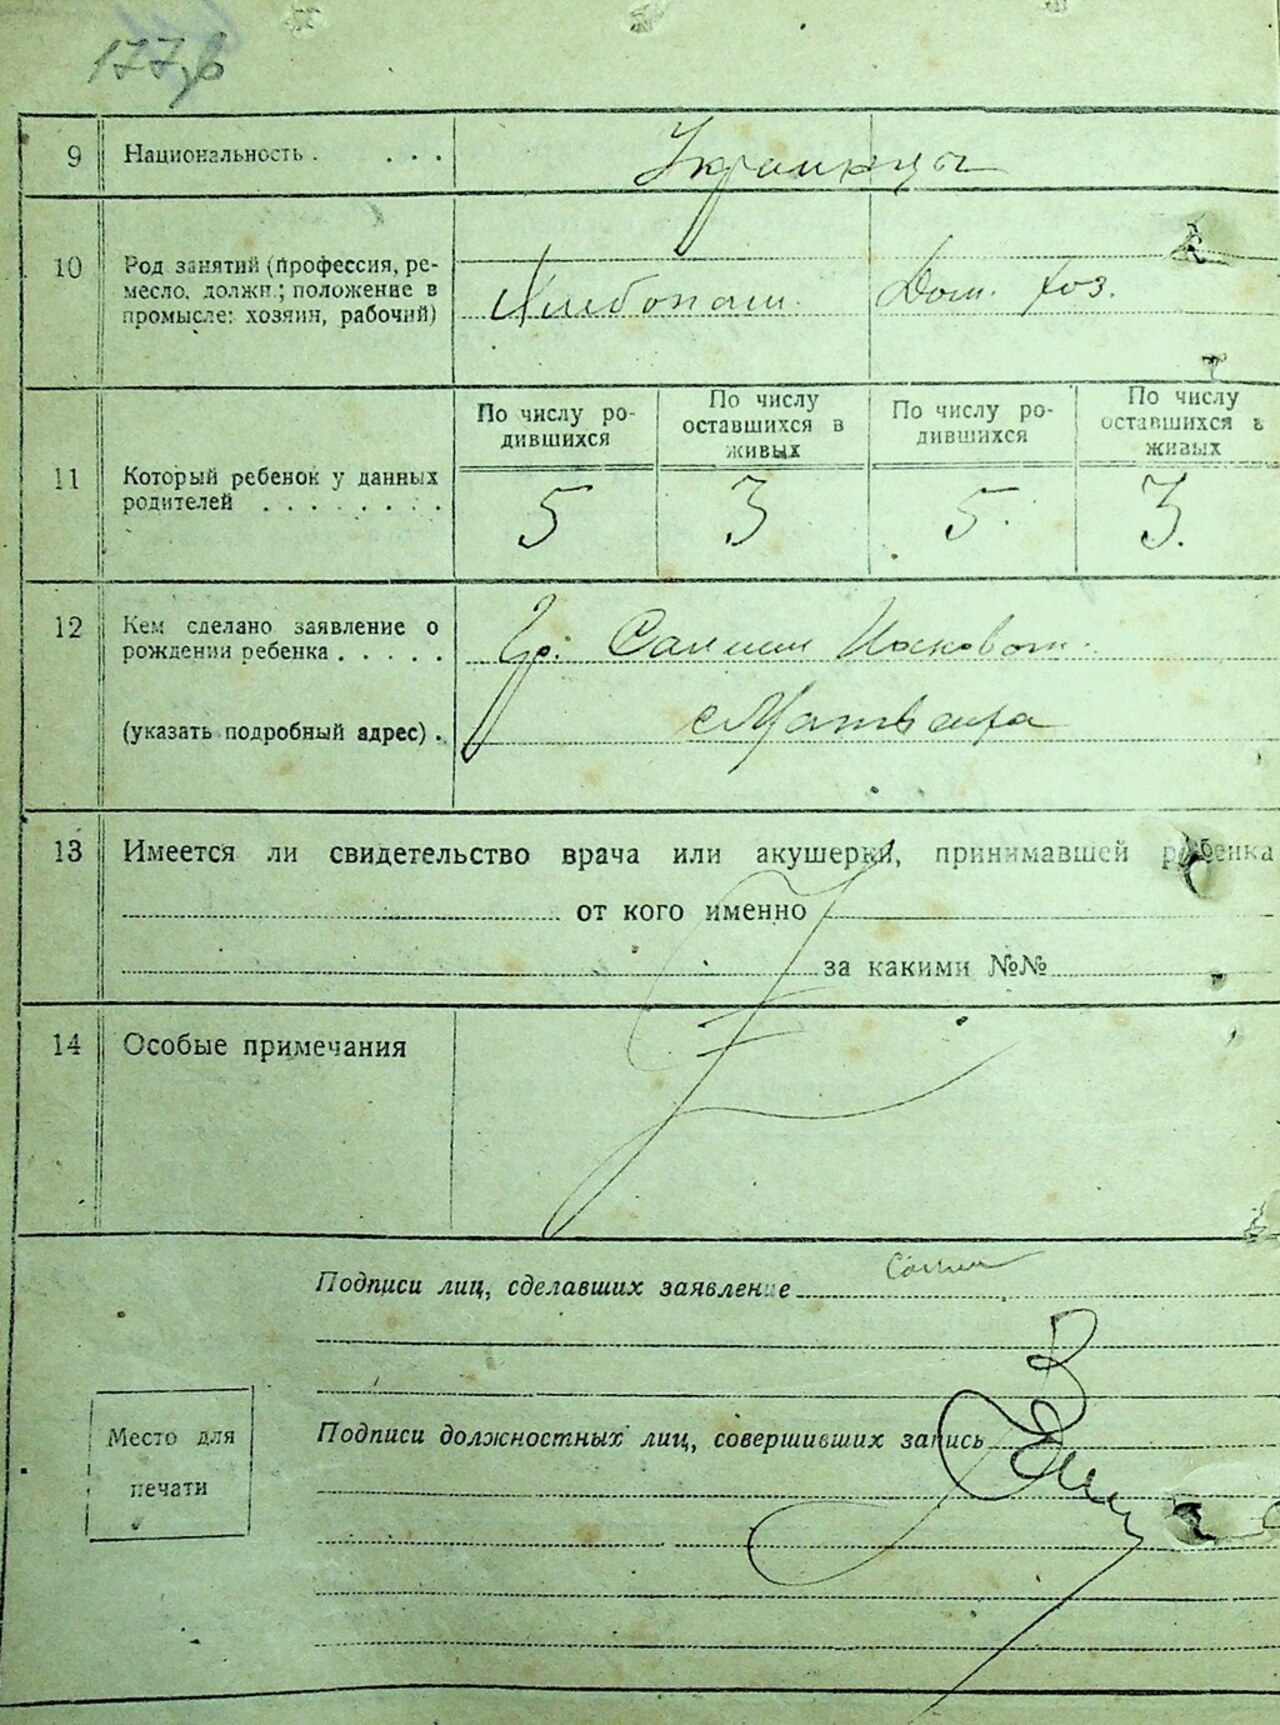 177
9 Национальность . . . . Украинцы
10 Род занятий (профессия, ре-
месло, должн.; положение в
промысле: хозяин, рабочий)
Хлебопаш. Дом. хоз.
По числу ро-
дившихся
По числу
оставшихся в
живых
По числу ро-
дившихся
По числу
оставшихся в
живых
11 Который ребенок у данных
родителей . . . . . . . .
5 3 5. 3.
12 Кем сделано заявление о
рождении ребенка . . . . .
Гр.
(указать подробный адрес) .
13 Имеется ли свидетельство врача или акушерки, принимавшей ребенка
от кого именно
за какими №№
14 Особые примечания
Подписи лиц, сделавших заявление
Подписи должностных лиц, совершивших запись
Место для
печати